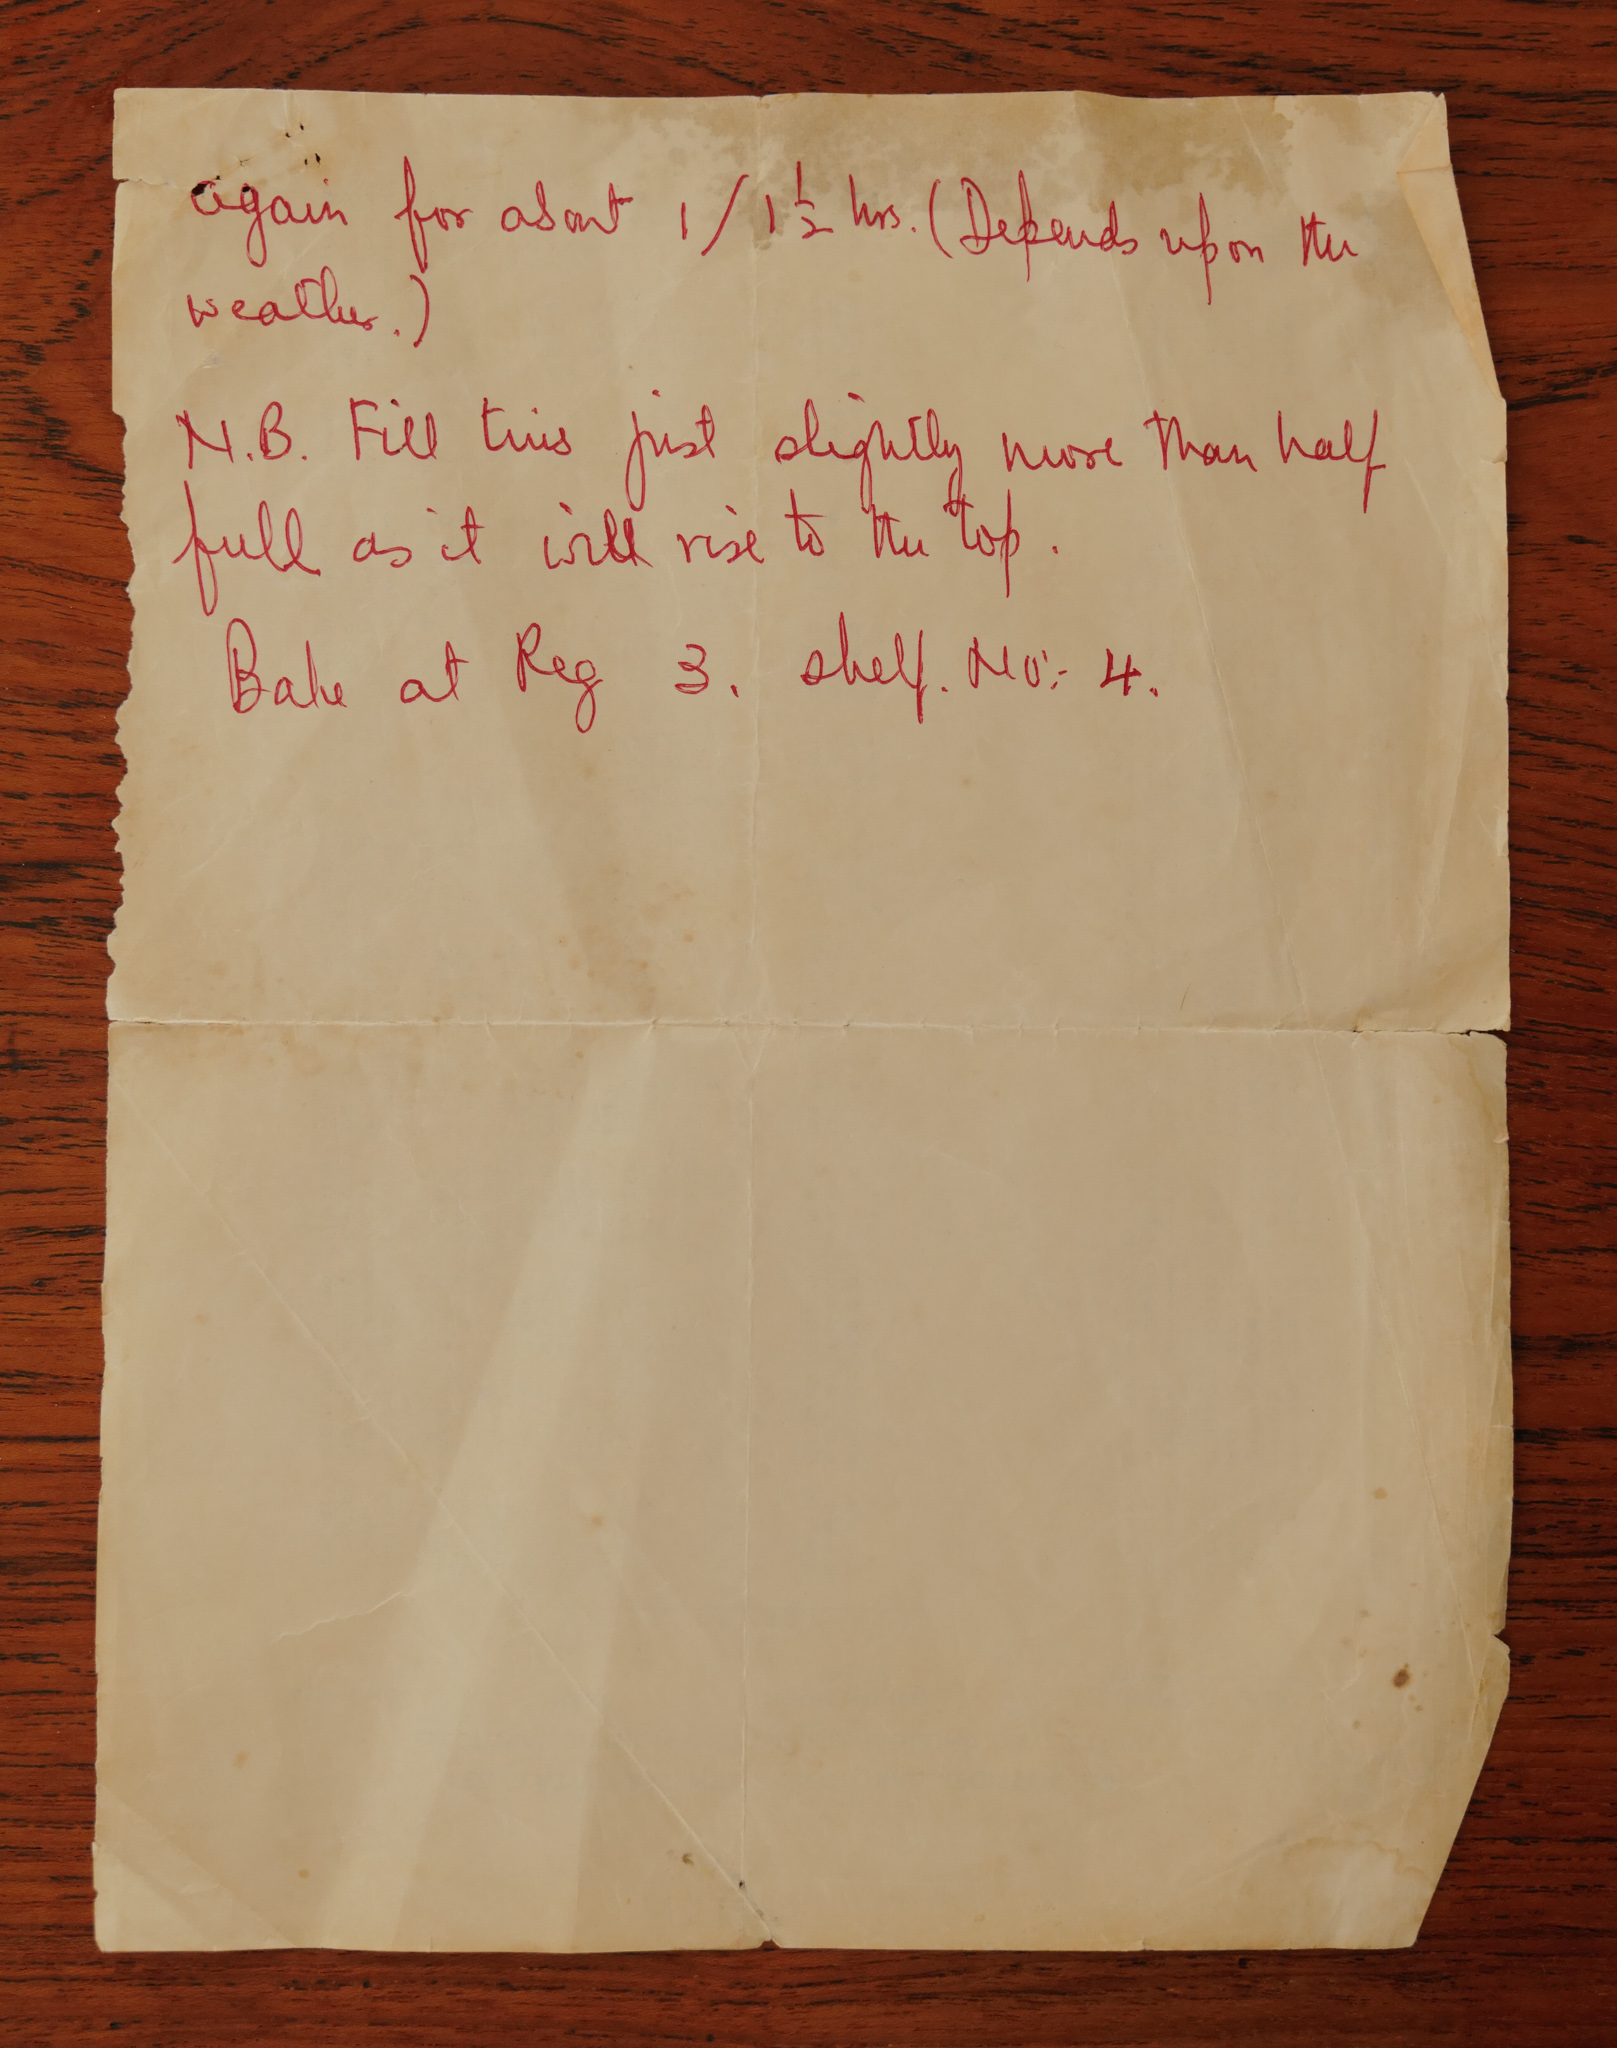 again for about 1/1½ hrs. (Depends upon the
weather.)
N.B. Fill tins just slightly more than half
full as it will rise to the top.
Bake at Reg 3. shelf. No:- 4.